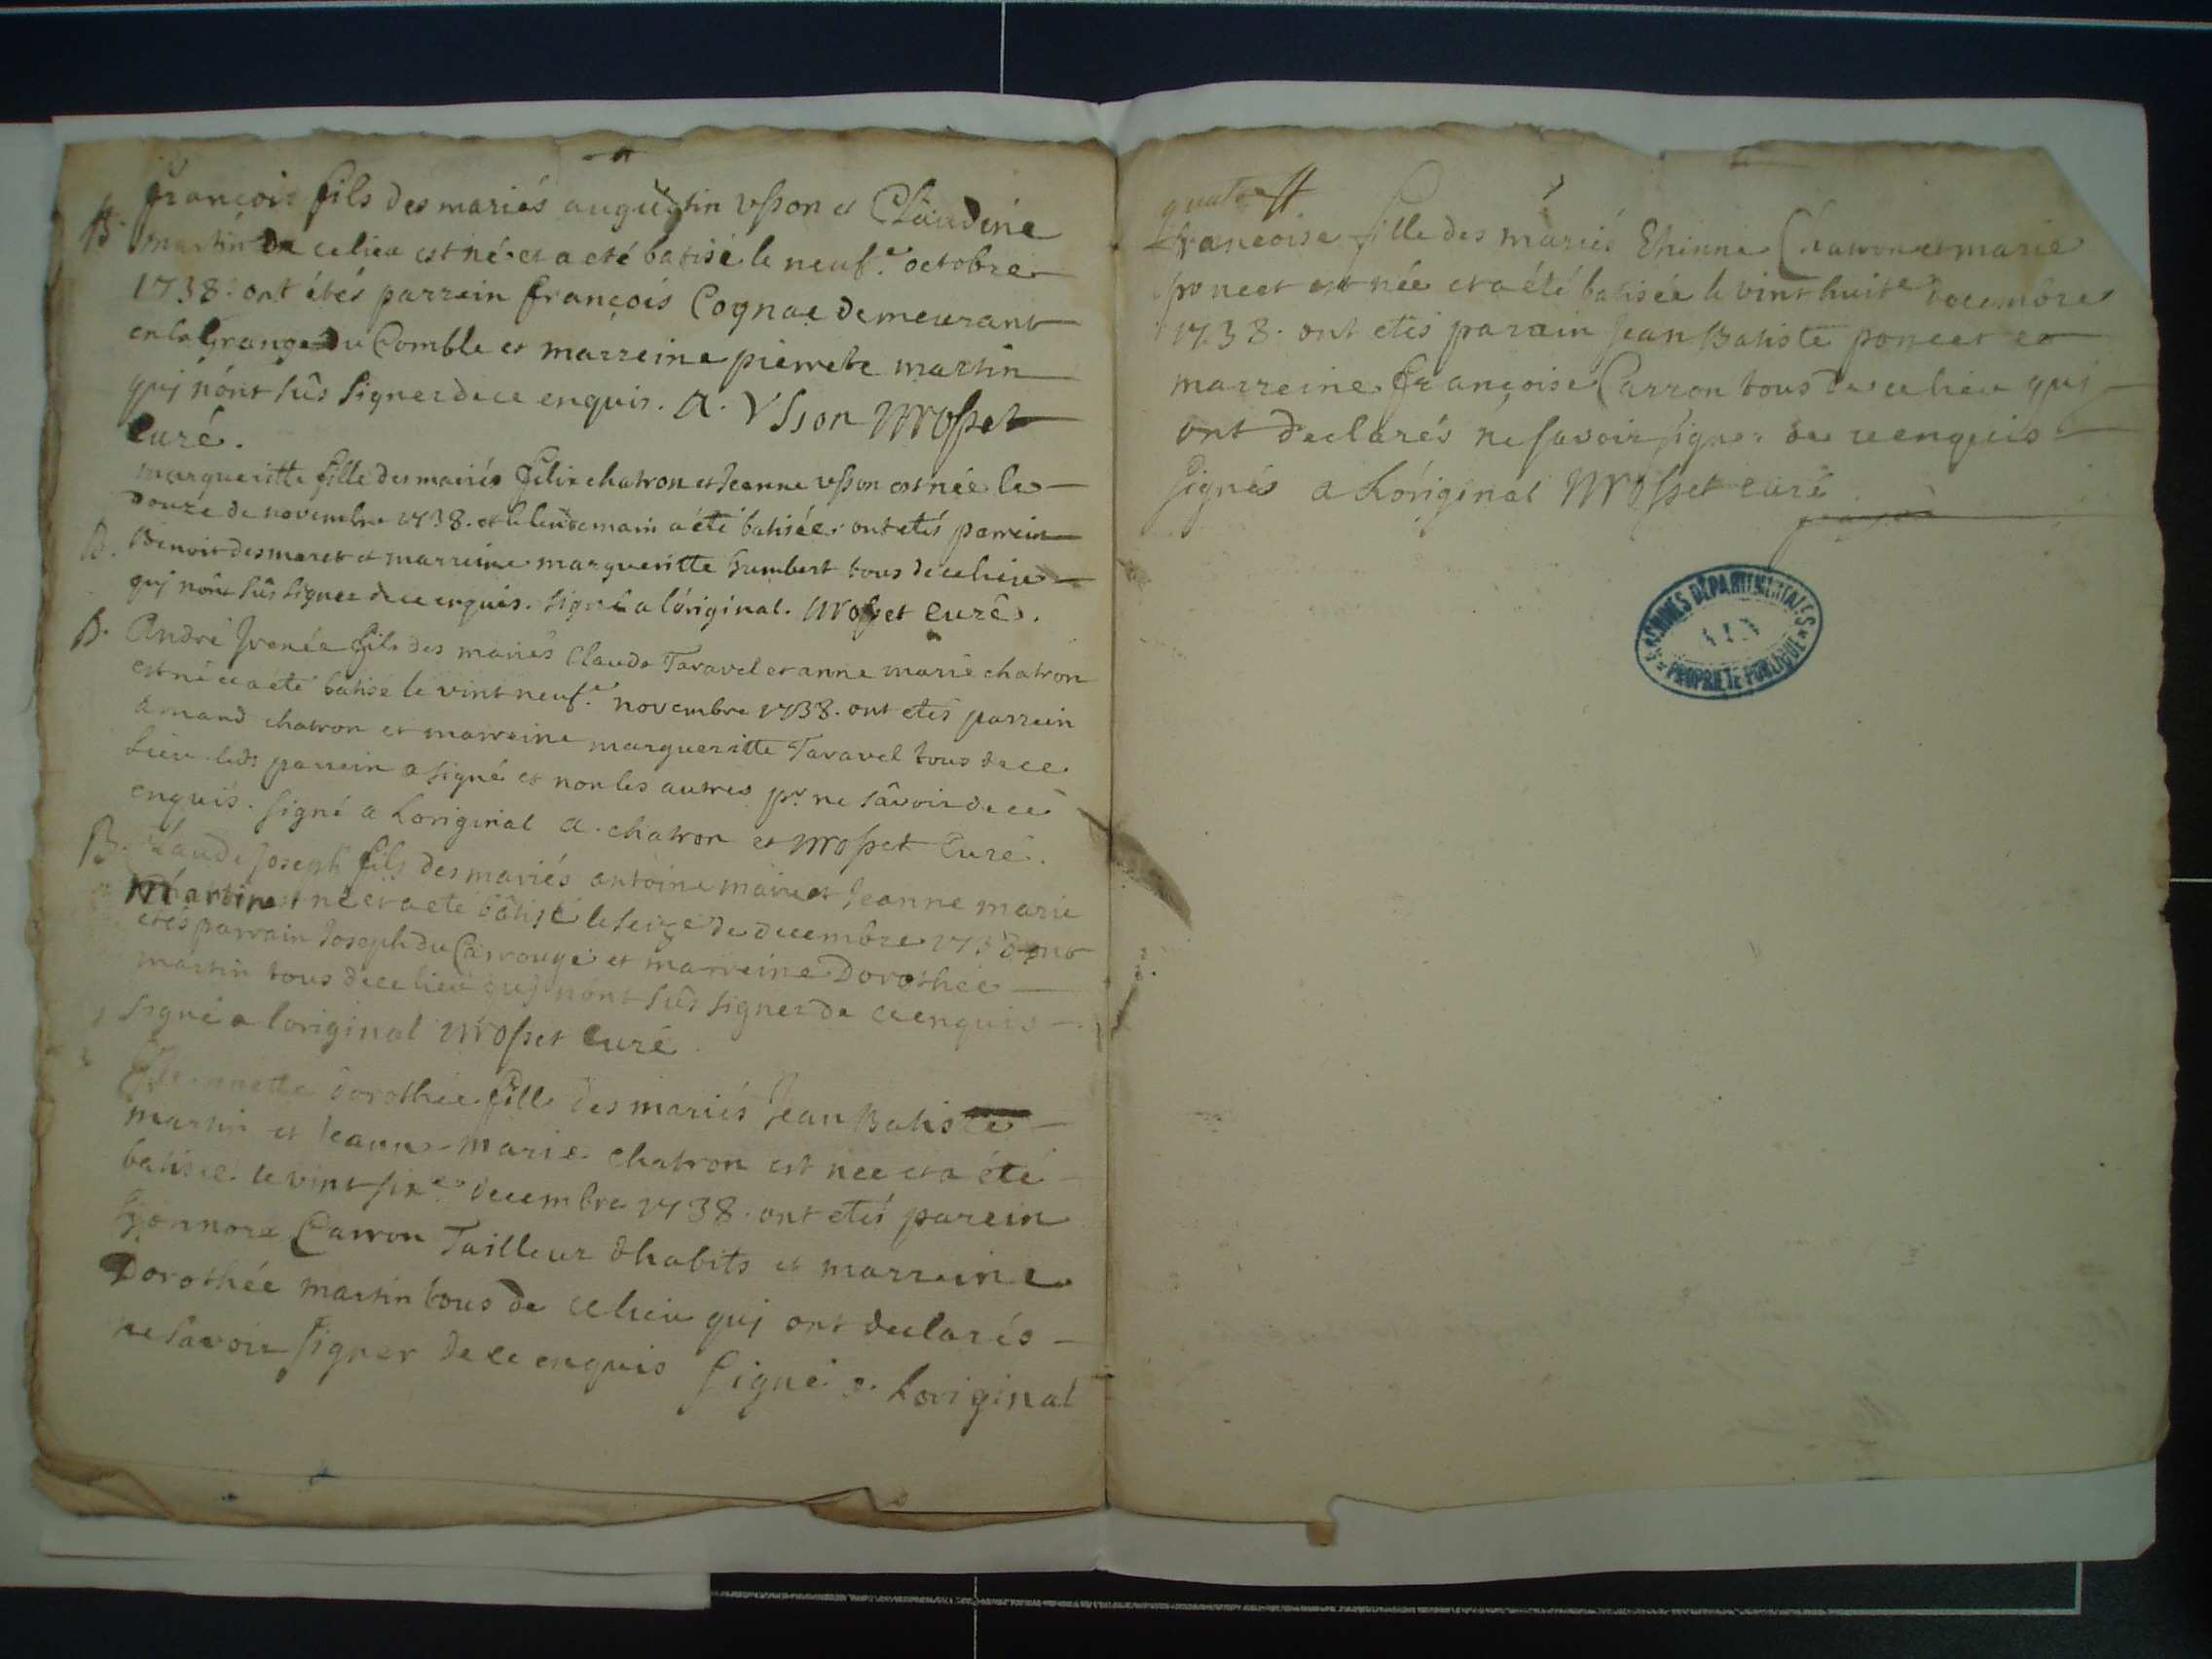 françois fils des mariés augustin vsson et Claudine
B. martin de ce lieu est né et a eté batisé le neuf.e octobre
1738. ont étés parrein françois Cognac demeurant
en la Grange du Comble et marreine pierrete martin
quj n'ont sûs signer de ce enquis. A. Vsson Mosset
curé.
margueritte fille des mariés felix chatron et Jeanne vsson est née le
douze de novembre 1738. et le lendemain a été batisée. ont etés parrein
B. Benoit desmaret et marreine margueritte humbert tous de ce lieu
quj n'ont sûs signer de ce enquis. signé a l'original. Mosset curé.
B. André Irenée fils des mariés Claude Taravel et anne marie chatron
est né et a eté batisé le vint neuf.e novembre 1738. ont etés parrein
amand chatron et marreine margueritte Taravel tous de ce
lieu led. parrein a signé et non les autres pr. ne sâvoir de ce
enquis. signé a Loriginal a. chatron et Mosset Curé.
B. Claude Joseph fils des mariés antoine maire et Jeanne marie
Martin est né et a eté bâtisé le seize de decembre 1738 ont
etés parrain Joseph du Carrouge et marreine Dorothée
martin tous de ce lieu quj n'ont sûs signer de ce enquis
signé a l'original Mosset curé
Dorothée fille des mariés Jean Batiste
martin et Jeanne marie chatron est née et a été
batisée le vint six.e decembre 1738. ont etés parein
honnore Carron Tailleur dhabits et marreine
Dorothée martin tous de ce lieu quj ont declarés
ne savoir signer de ce enquis signé a Loriginal
quatre
francoise fille des mariés Etienne Chatron et marie
poncet est née et a été batisée le vint huit.e decembre
1738. ont etés parain Jean Batiste poncet et
marreine françoise Carron tous de ce lieu quj
ont declarés ne savoir signer de ce enquis
signés a L'original Mosset curé
ARCHIVES DÉPARTEMENTALES
AIN
PROPRIÉTÉ PUBLIQUE